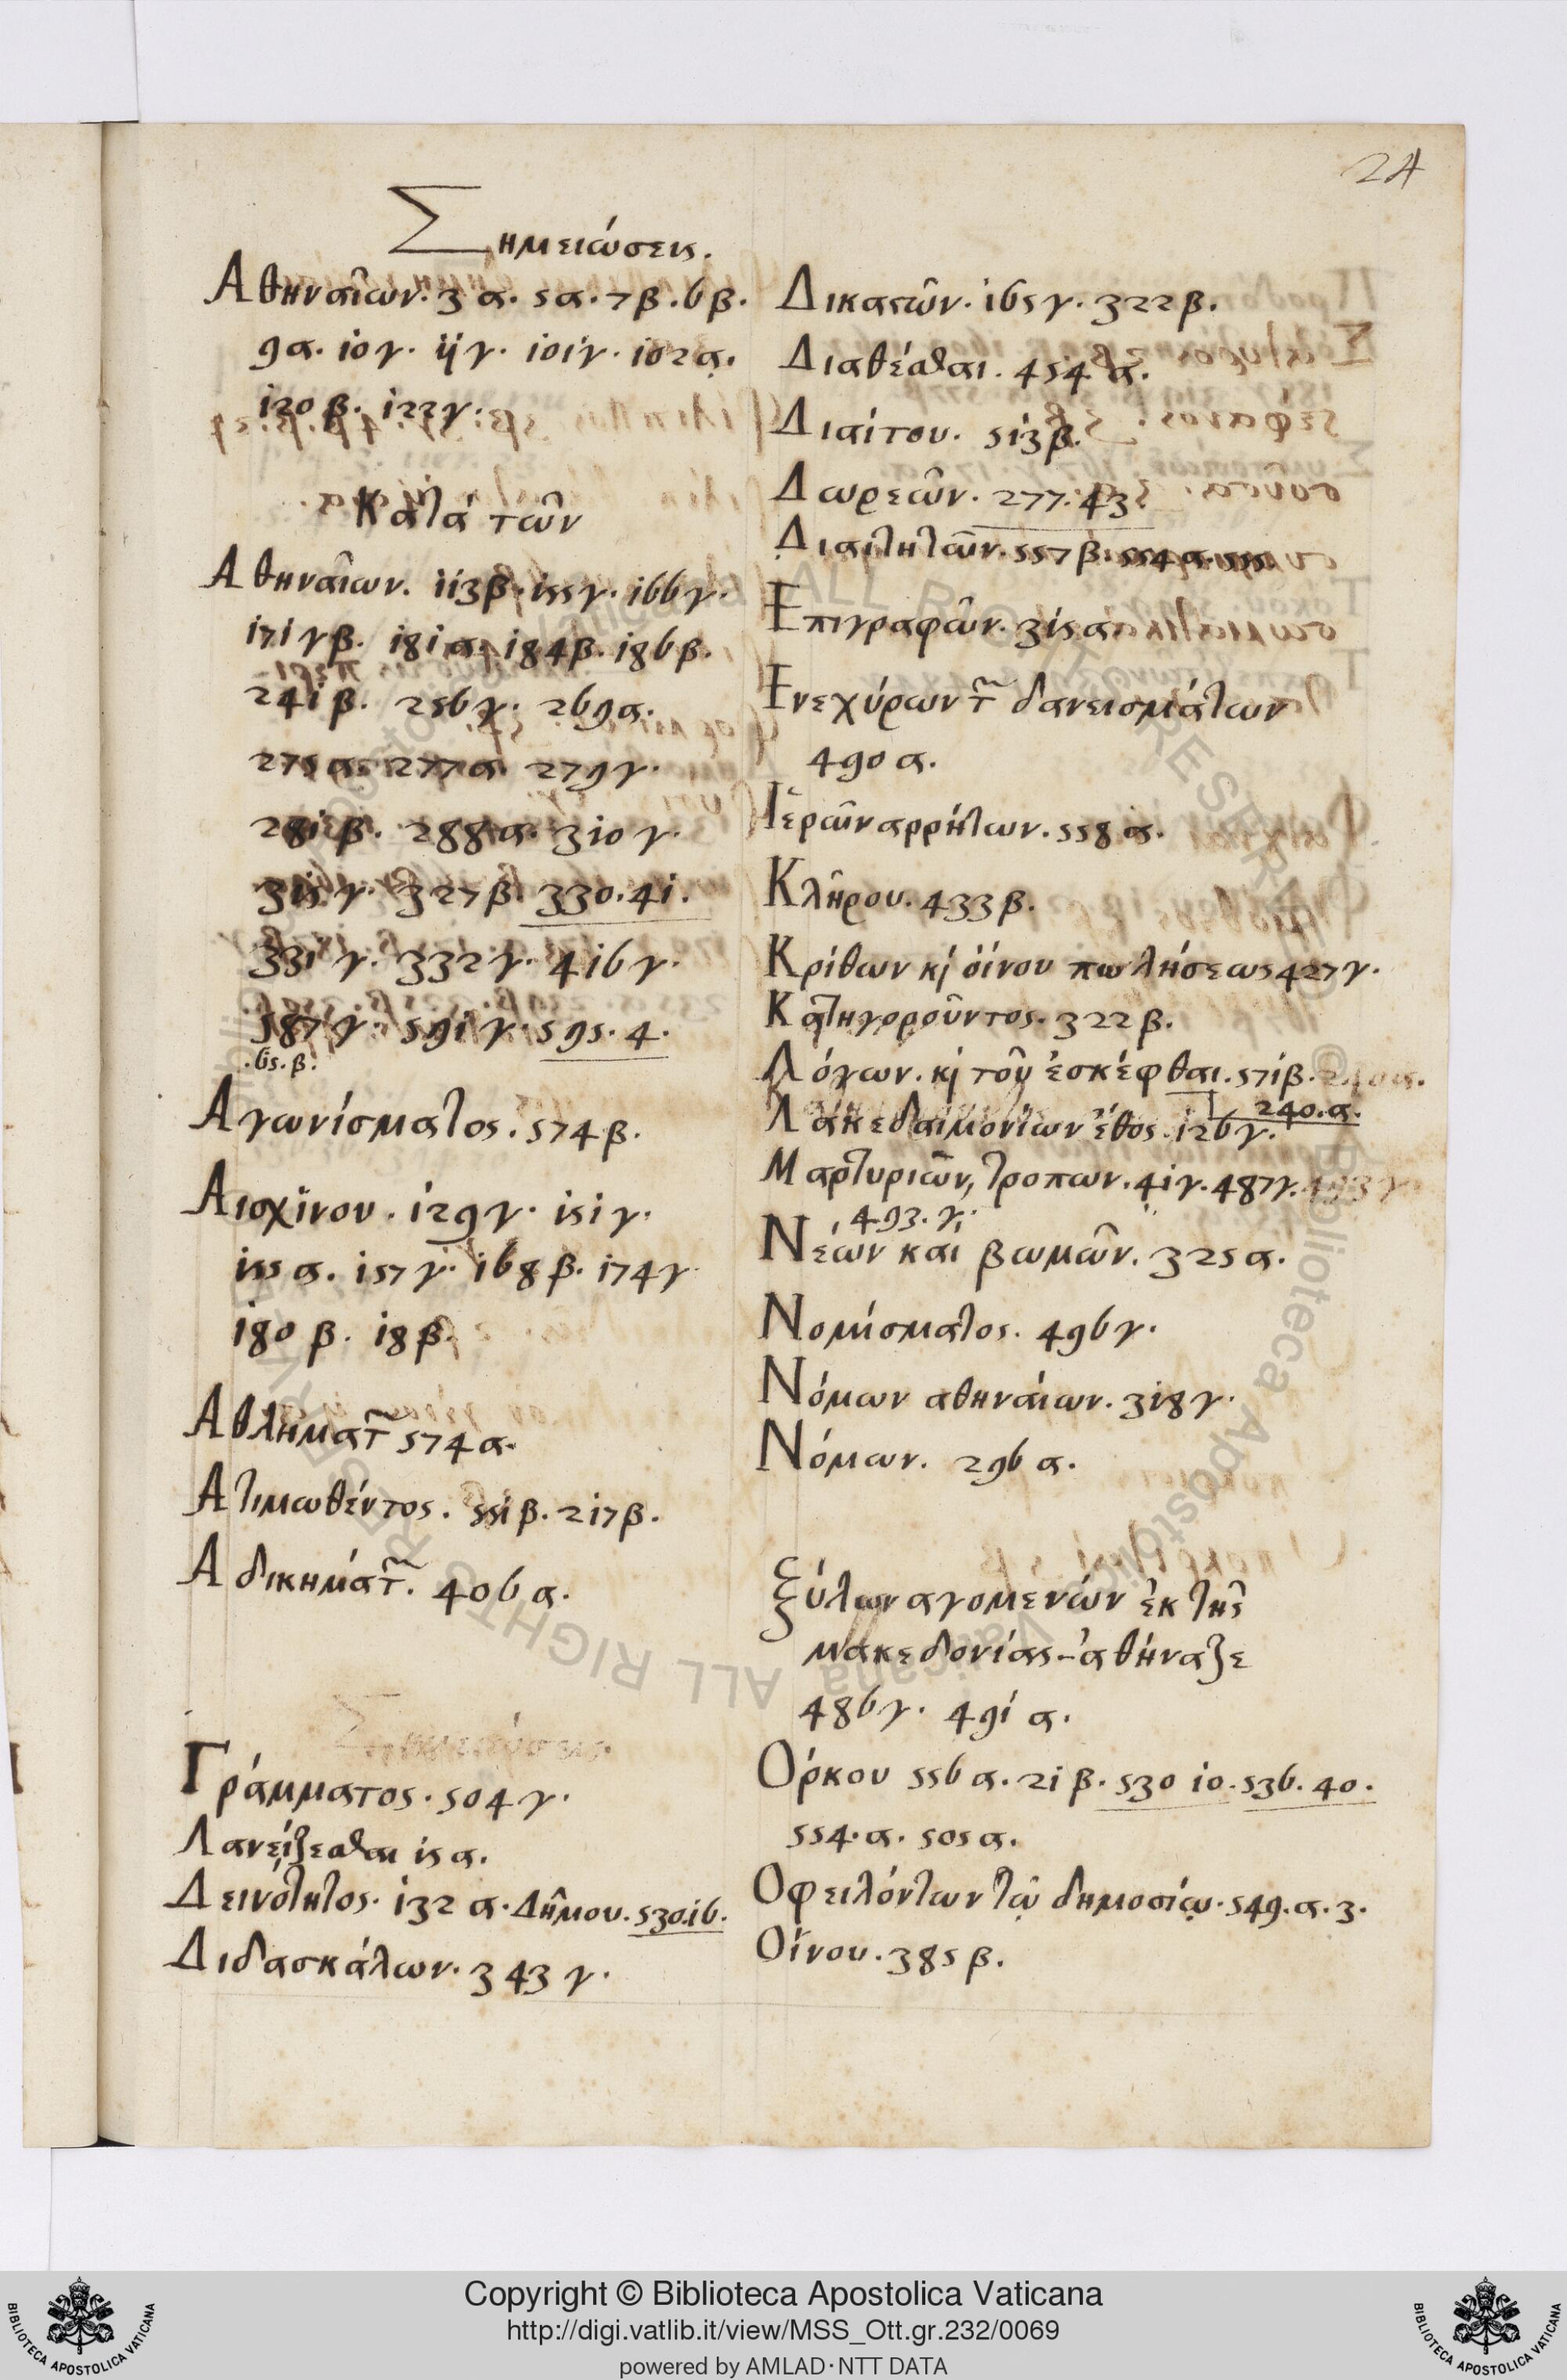 24
Σημειώσεις.
Αθηναίων. 3 α. 5 α. 7 β. 6 β.
9 α. 10 γ. 11 γ. 101 γ. 102 α.
120 β. 122 γ.
Κατά τῶν
Αθηναίων. 113 β. 155 γ. 166 γ.
171 γ β. 181 α. 184 β. 186 β.
241 β. 256 γ. 269 α.
275 α. 277 α. 279 γ.
281 β. 288 α. 310 γ.
315 γ. 327 β. 330. 41.
331 γ. 332 γ. 416 γ.
587 γ. 591 γ. 595. 4.
.65. β.
Αγωνίσματος. 574 β.
Αισχίνου. 129 γ. 151 γ.
155 α. 157 γ. 168 β. 174 γ
180 β. 18 β.
Αθληματ͂ 574 α.
Ατιμωθέντος. 551 β. 217 β.
Αδικημάτ͂. 406 α.
Σημειώσεις.
Γράμματος. 504 γ.
Λανείζεσθαι 15 α.
Δεινότητος. 132 α. Δῆμου. 530. 16.
Διδασκάλων. 343 γ.
Δικαστῶν. 165 γ. 322 β.
Διαθέσθαι. 454 α.
Διαίτου. 513 β.
Δωρεῶν. 277. 43.
Διαιτητῶν. 557 β. 554 α. 555
Επιγραφῶν. 315 α
Ενεχύρων τ͂ δανεισμάτων
490 α.
Ιἑρῶν αρρήτων. 558 α.
Κλῆρου. 433 β.
Κρίθων κὶ ὀίνου πωλήσεως 427 γ.
Κατηγοροῦντος. 322 β.
Λόγων. κὶ τοῦ ἐσκέφθαι. 571 β. 240 α.
240. α.
Λακεδαιμονίων ἔθος. 126 γ.
Μαρτυριῶν, τροπων. 41 γ. 487 γ. 493 γ
493. γ.
Νέών καὶ βωμῶν. 325 α.
Νομίσματος. 496 γ.
Νόμων αθηνάιων. 318 γ.
Νόμων. 296 α.
Ξύλων αγομενών ἐκ τῆς
μακεδονίας-ἀθήναζε
486 γ. 491 α.
Ορκου 556 α. 21 β. 530 10. 536. 40.
554. α. 505 α.
Οφειλόντων τῷ δημοσίῳ. 549. α. 3.
Οίνου. 385 β.
Copyright © Biblioteca Apostolica Vaticana
http://digi.vatlib.it/view/MSS_Ott.gr.232/0069
powered by AMLAD·NTT DATA
BIBLIOTECA APOSTOLICA VATICANA
BIBLIOTECA APOSTOLICA VATICANA